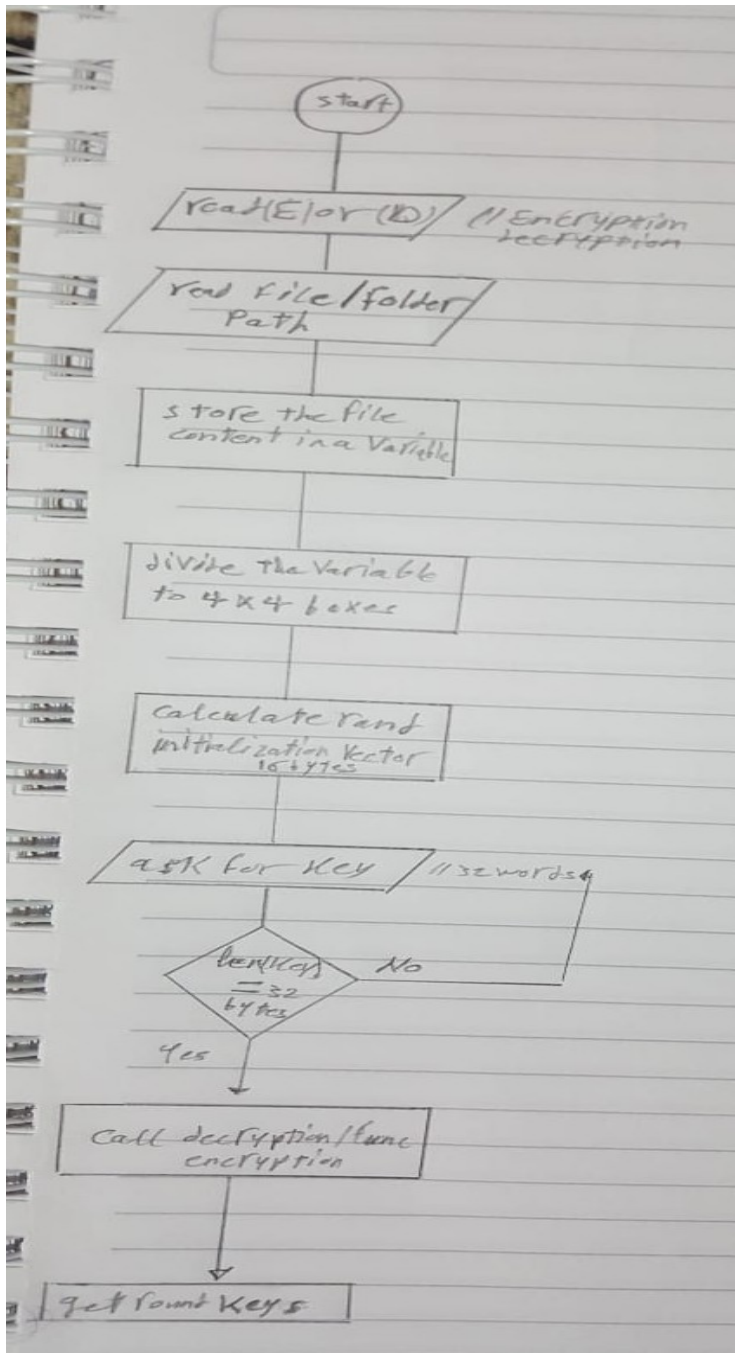 start
read(E)or(D) //Encryption
decryption
read file/folder
Path
store the file
content in a Variable
divide the Variable
to 4x4 boxes
Calculate rand
initialization Vector
16 bytes
ask for Key //32 words
len(Key)
=32
bytes
No
Yes
Call decryption/func
encryption
get round Keys